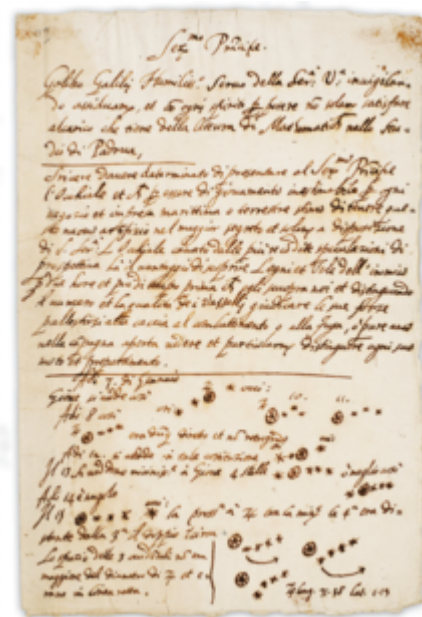 Ser.mo Principe.
Galileo Galilei Humiliss.o Servo della Ser.a V.a invigilan-
do assiduam.te, et con ogni spirito p potere no solam satisfare
alcarico che tiene della lettura di Mathematich nello Stu-
dio di Padova,
Scrivere d'havere determinato di presentare al Ser.mo Principe
l'Occhiale et p essere di giovamento inestimabile p ogni
negozio et impresa marittima o terrestre stimo di tenere que-
sto nuovo artifizio nel maggior segreto et solam a disposizione
di S. Ser. L'Occhiale cavato dalle più recondite speculazioni di
prospettiva ha il vantaggio di scoprire Legni et Vele dell'inimico
p due hore et più di tempo prima ch egli scuopra noi et distinguendo
il numero et la qualità de i Vasselli giudicare le sue forze
pallestirsi alla caccia al combattimento o alla fuga, o pure anco
nella campagna aperta vedere et particolarm distinguere ogni suo
moto et preparamento.
Adi 7. di Gennaio
Giove si vede così
Adi 8 così
Adi 12. si vedde in tale costituzione
Il 13 si veddono vicinissi a Giove 4 stelle o meglio così
Adi 14 è nugolo
Il 15 la pross.a a la 4.a era di-
stante dalla 3.a il doppio
Lo spazio delle 3 occidentali no era
maggiore del diametro di et e-
rano in linea retta.
long. 71.38 lat. 1.13